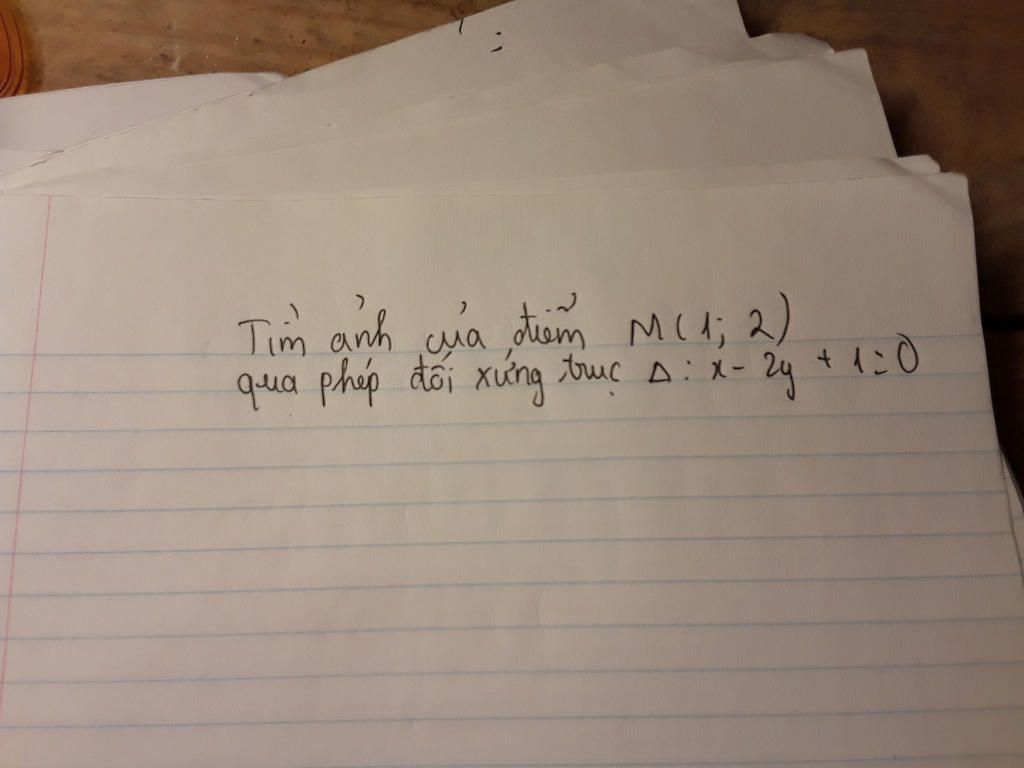 Tìm ảnh của điểm M(1; 2)
qua phép đối xứng trục Δ: x - 2y + 1 = 0